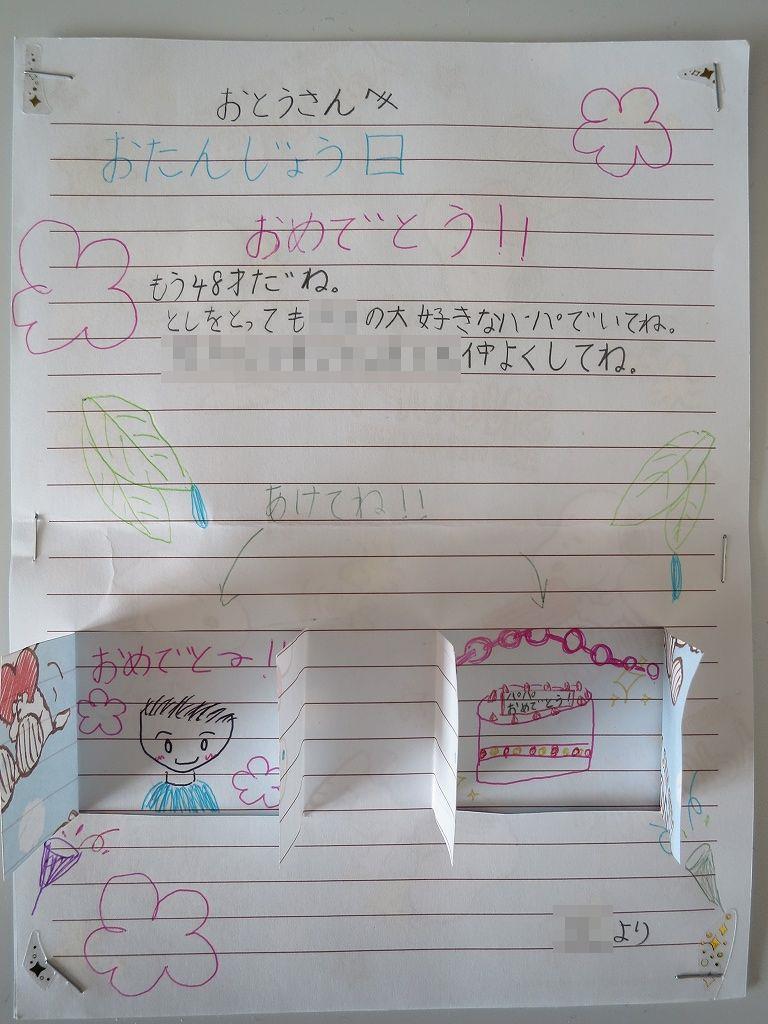 おとうさんへ
おたんじょう日
おめでとう!!
もう48才だね。
としをとっても の大好きなパパでいてね。
仲よくしてね。
あけてね!!
おめでとう!!
パパ
おめでとう!!
より